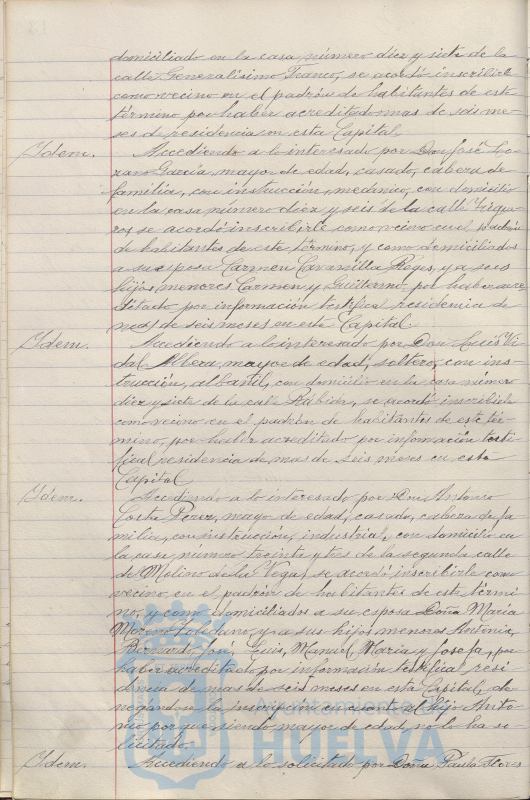 domiciliado en la casa número diez y siete de la
calle Generalísimo Franco, se acordó inscribirle
como vecino en el padrón de habitantes de este
término por haber acreditado mas de seis me-
ses de residencia en esta Capital.
Idem. Accediendo a lo interesado por Don José Lo-
zano García, mayor de edad, casado, cabeza de
familia, con instrucción, mecánico, con domicilio
en la casa número diez y seis de la calle
se acordó inscribirle como vecino en el padrón
de habitantes de este término, y como domiciliados
a su esposa Carmen Reyes, y a sus
hijos menores Carmen y Guillermo, por haber acre-
ditado por información testifical residencia de
mas de seis meses en esta Capital.
Idem. Accediendo a lo interesado por Don Luis Vi-
dal Albera, mayor de edad, soltero, con ins-
trucción, albañil, con domicilio en la casa número
diez y siete de la calle Rábida, se acordó inscribirle
como vecino en el padrón de habitantes de este tér-
mino, por haber acreditado por información testi-
fical residencia de mas de seis meses en esta
Capital
Idem. Accediendo a lo interesado por Don Antonio
Costa Perez, mayor de edad, casado, cabeza de fa-
milia, con instrucción, industrial, con domicilio en
la casa número treinta y tres de la segunda calle
del Molino de la Vega, se acordó inscribirle como
vecino en el padrón de habitantes de este térmi-
no, y como domiciliados a su esposa Doña María
Moreno Toledano, y a sus hijos menores Antonia,
Luis, Manuel, María y Josefa, por
haber acreditado por información testifical resi-
dencia de mas de seis meses en esta Capital, de-
negandose la inscripción en cuanto al hijo Anto-
nio porque siendo mayor de edad, no lo ha so-
licitado.
Idem. Accediendo a lo solicitado por Doña Paula Flores
Ayuntamiento de
HUELVA